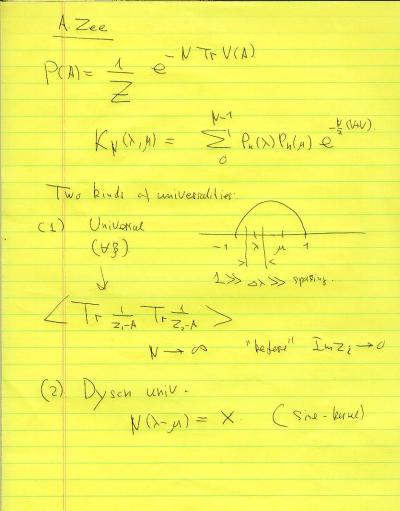 A. Zee
P(A) = 1/Z e^{-N Tr V(A)}
K_N(λ,μ) = Σ_0^{N-1} P_n(λ) P_n(μ) e^{-N/2 (V+V)}
Two kinds of universalities.
(1) Universal
-1 λ μ 1
(∀β)
1 >> Δλ >> spacing.
< Tr 1/(z_1-A) Tr 1/(z_2-A) >
N → ∞ "before" Im z_i → 0
(2) Dyson univ.
N(λ-μ) = x (sine-kernel)